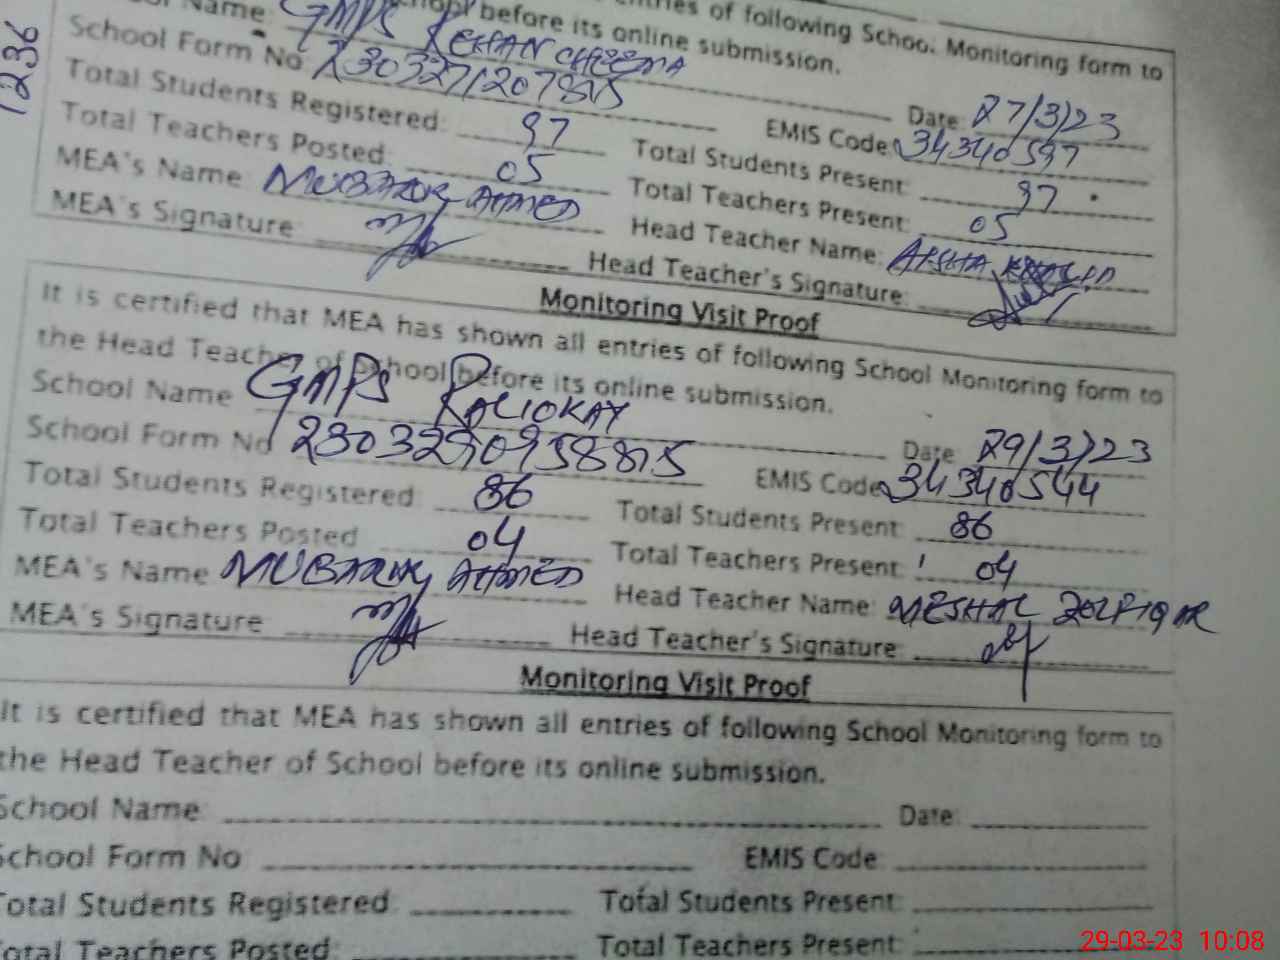 entries of following School Monitoring form to
School before its online submission.
Name: GMPS REHAN CHEEMA Date: 27/3/23
School Form No EMIS Code: 34340597
Total Students Registered: 97 Total Students Present: 97
Total Teachers Posted: 05 Total Teachers Present: 05
MEA's Name: MUBARAK AHMED Head Teacher Name:
MEA's Signature: Head Teacher's Signature:
1236
Monitoring Visit Proof
It is certified that MEA has shown all entries of following School Monitoring form to
the Head Teacher of School before its online submission.
School Name GMPS Date 29/3/23
School Form No EMIS Code 34340544
Total Students Registered 86 Total Students Present: 86
Total Teachers Posted 04 Total Teachers Present: 04
MEA's Name MUBARAK AHMED Head Teacher Name: MESHAL ZOLFIQAR
MEA's Signature Head Teacher's Signature:
Monitoring Visit Proof
It is certified that MEA has shown all entries of following School Monitoring form to
the Head Teacher of School before its online submission.
School Name: Date:
School Form No EMIS Code
Total Students Registered: Total Students Present:
Total Teachers Posted: Total Teachers Present:
29-03-23 10:08